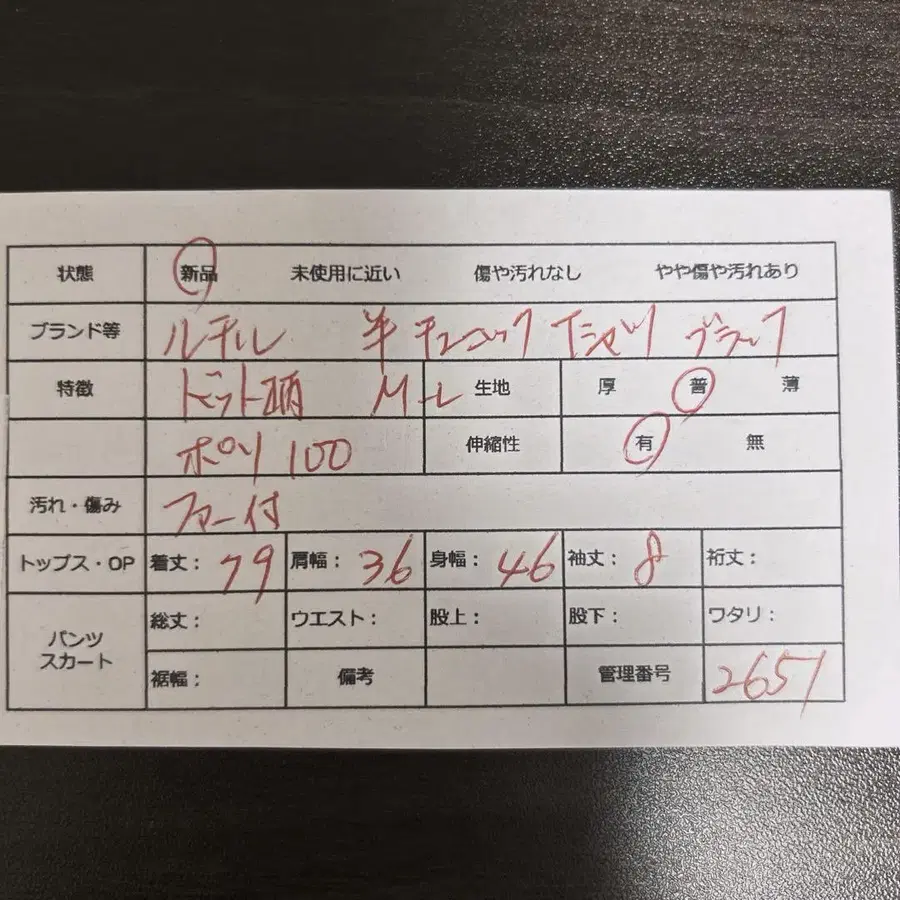 状態 新品 未使用に近い 傷や汚れなし やや傷や汚れあり
ブランド等 ルチル 半 チュニック Tシャツ ブラック
特徴 ドット柄 M-L 生地 厚 普 薄
ポリ100 伸縮性 有 無
汚れ・傷み ファー付
トップス・OP 着丈: 79 肩幅: 36 身幅: 46 袖丈: 8 裄丈:
パンツ スカート 総丈: ウエスト: 股上: 股下: ワタリ:
裾幅: 備考 管理番号 2651